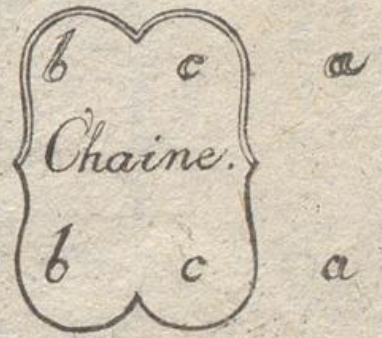 b c a
Chaine.
b c a